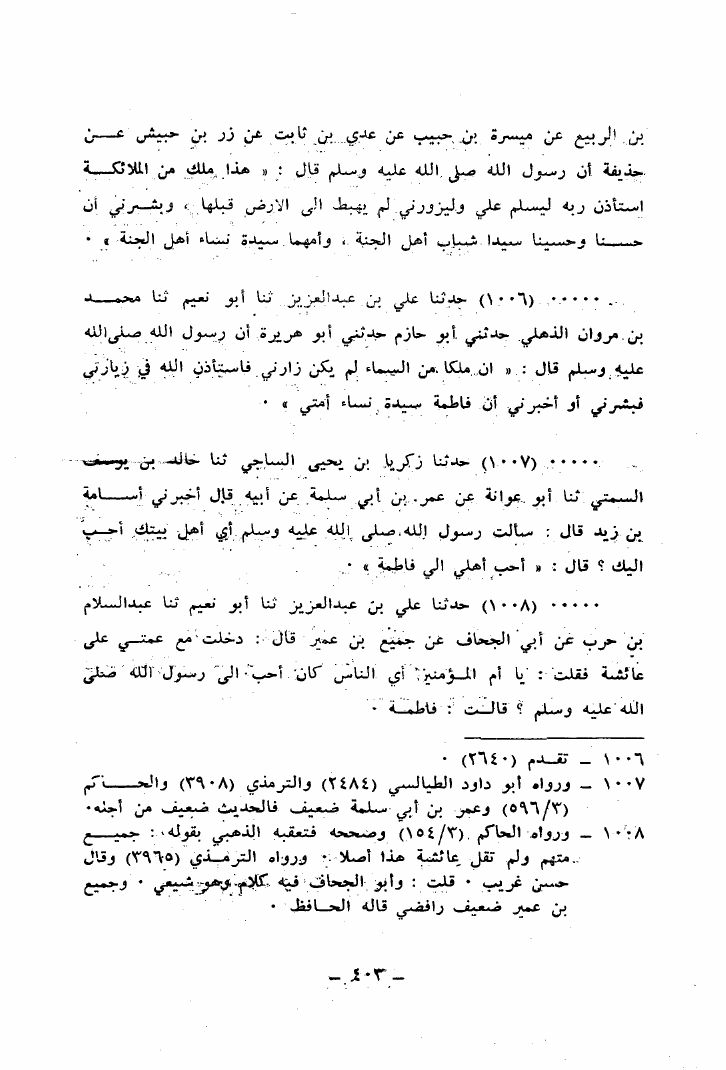 بن الربيع عن ميسرة بن حبيب عن عدي بن ثابت عن زر بن حبيش عن
حذيفة أن رسول الله صلى الله عليه وسلم قال : « هذا ملك من الملائكة
استأذن ربه ليسلم علي وليزورني لم يهبط الى الارض قبلها ، وبشرني أن
حسنا وحسينا سيدا شباب أهل الجنة ، وأمهما سيدة نساء أهل الجنة » ٠
٠٠٠٠٠ (١٠٠٦) حدثنا علي بن عبدالعزيز ثنا أبو نعيم ثنا محمد
بن مروان الذهلي حدثني أبو حازم حدثني أبو هريرة أن رسول الله صلى الله
عليه وسلم قال : « ان ملكا من السماء لم يكن زارني فاستأذن الله في زيارتي
فبشرني أو أخبرني أن فاطمة سيدة نساء أمتي » ٠
٠٠٠٠٠ (١٠٠٧) حدثنا زكريا بن يحيى الساجي ثنا خالد بن يوسف
السمتي ثنا أبو عوانة عن عمر بن أبي سلمة عن أبيه قال أخبرني أسامة
بن زيد قال : سألت رسول الله صلى الله عليه وسلم أي أهل بيتك أحب
اليك ؟ قال : « أحب أهلي الي فاطمة » ٠
٠٠٠٠٠ (١٠٠٨) حدثنا علي بن عبدالعزيز ثنا أبو نعيم ثنا عبدالسلام
بن حرب عن أبي الجحاف عن جميع بن عمير قال : دخلت مع عمتي على
عائشة فقلت : يا أم المؤمنين أي الناس كان أحب الى رسول الله صلى
الله عليه وسلم ؟ قالت : فاطمة ٠
١٠٠٦ – تقدم (٢٦٤٠) ٠
١٠٠٧ – ورواه أبو داود الطيالسي (٢٤٨٤) والترمذي (٣٩٠٨) والحاكم
(٥٩٦/٣) وعمر بن أبي سلمة ضعيف فالحديث ضعيف من أجله٠
١٠٠٨ – ورواه الحاكم (١٥٤/٣) وصححه فتعقبه الذهبي بقوله : جميع
متهم ولم تقل عائشة هذا أصلا ٠ ورواه الترمذي (٣٩٦٥) وقال
حسن غريب ٠ قلت : وأبو الجحاف فيه كلام وهو شيعي ٠ وجميع
بن عمير ضعيف رافضي قاله الحافظ ٠
– ٤٠٣ –